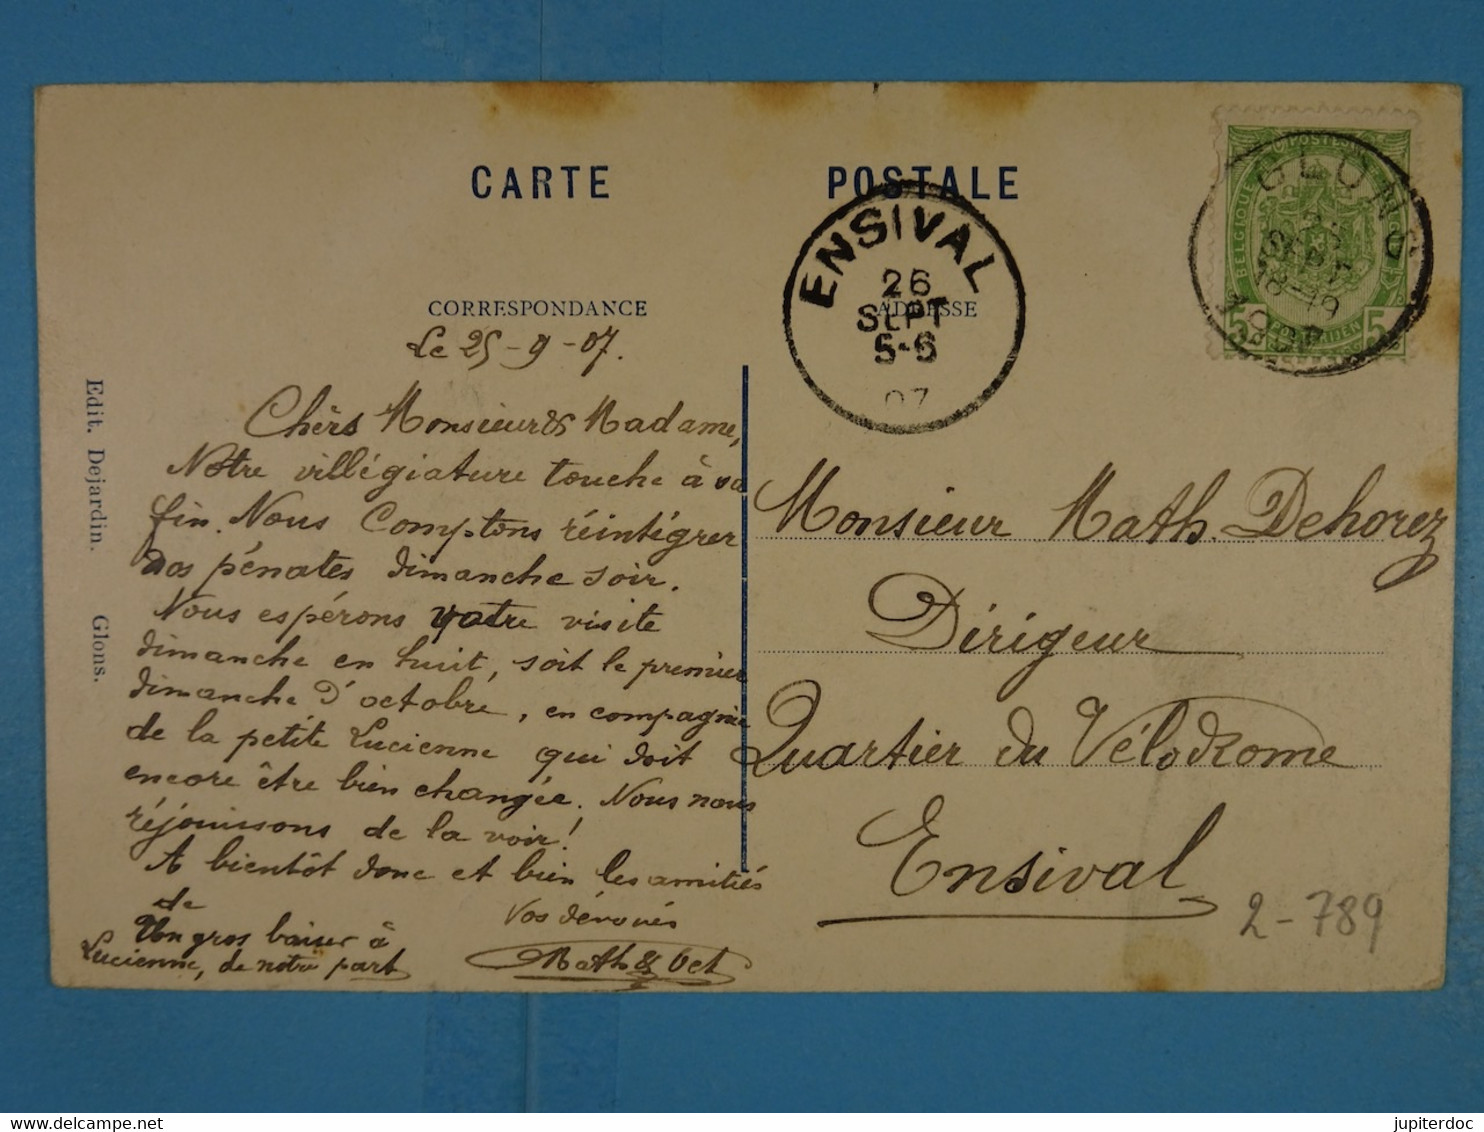 CARTE POSTALE
CORRESPONDANCE
ADRESSE
Le 25-9-07.
Chèrs Monsieur & Madame,
Notre villégiature touche à sa
fin. Nous comptons réintégrer
nos pénates dimanche soir.
Nous espérons votre visite
dimanche en huit, soit le premier
dimanche d'octobre, en compagnie
de la petite Lucienne qui doit
encore être bien changée. Nous nous
réjouissons de la voir!
A bientôt donc et bien les amitiés
de
Vos dévoués
Math &
Un gros baiser à
Lucienne, de notre part
Edit. Dejardin. Glons.
ENSIVAL
26
SEPT
5-6
07
GLONS
25
SEPT
18-19
1907
BELGIQUE
POSTES
5
5
Monsieur Math. Dehorez
Dirigeur
Quartier du Vélodrome
Ensival
2-789
jupiterdoc